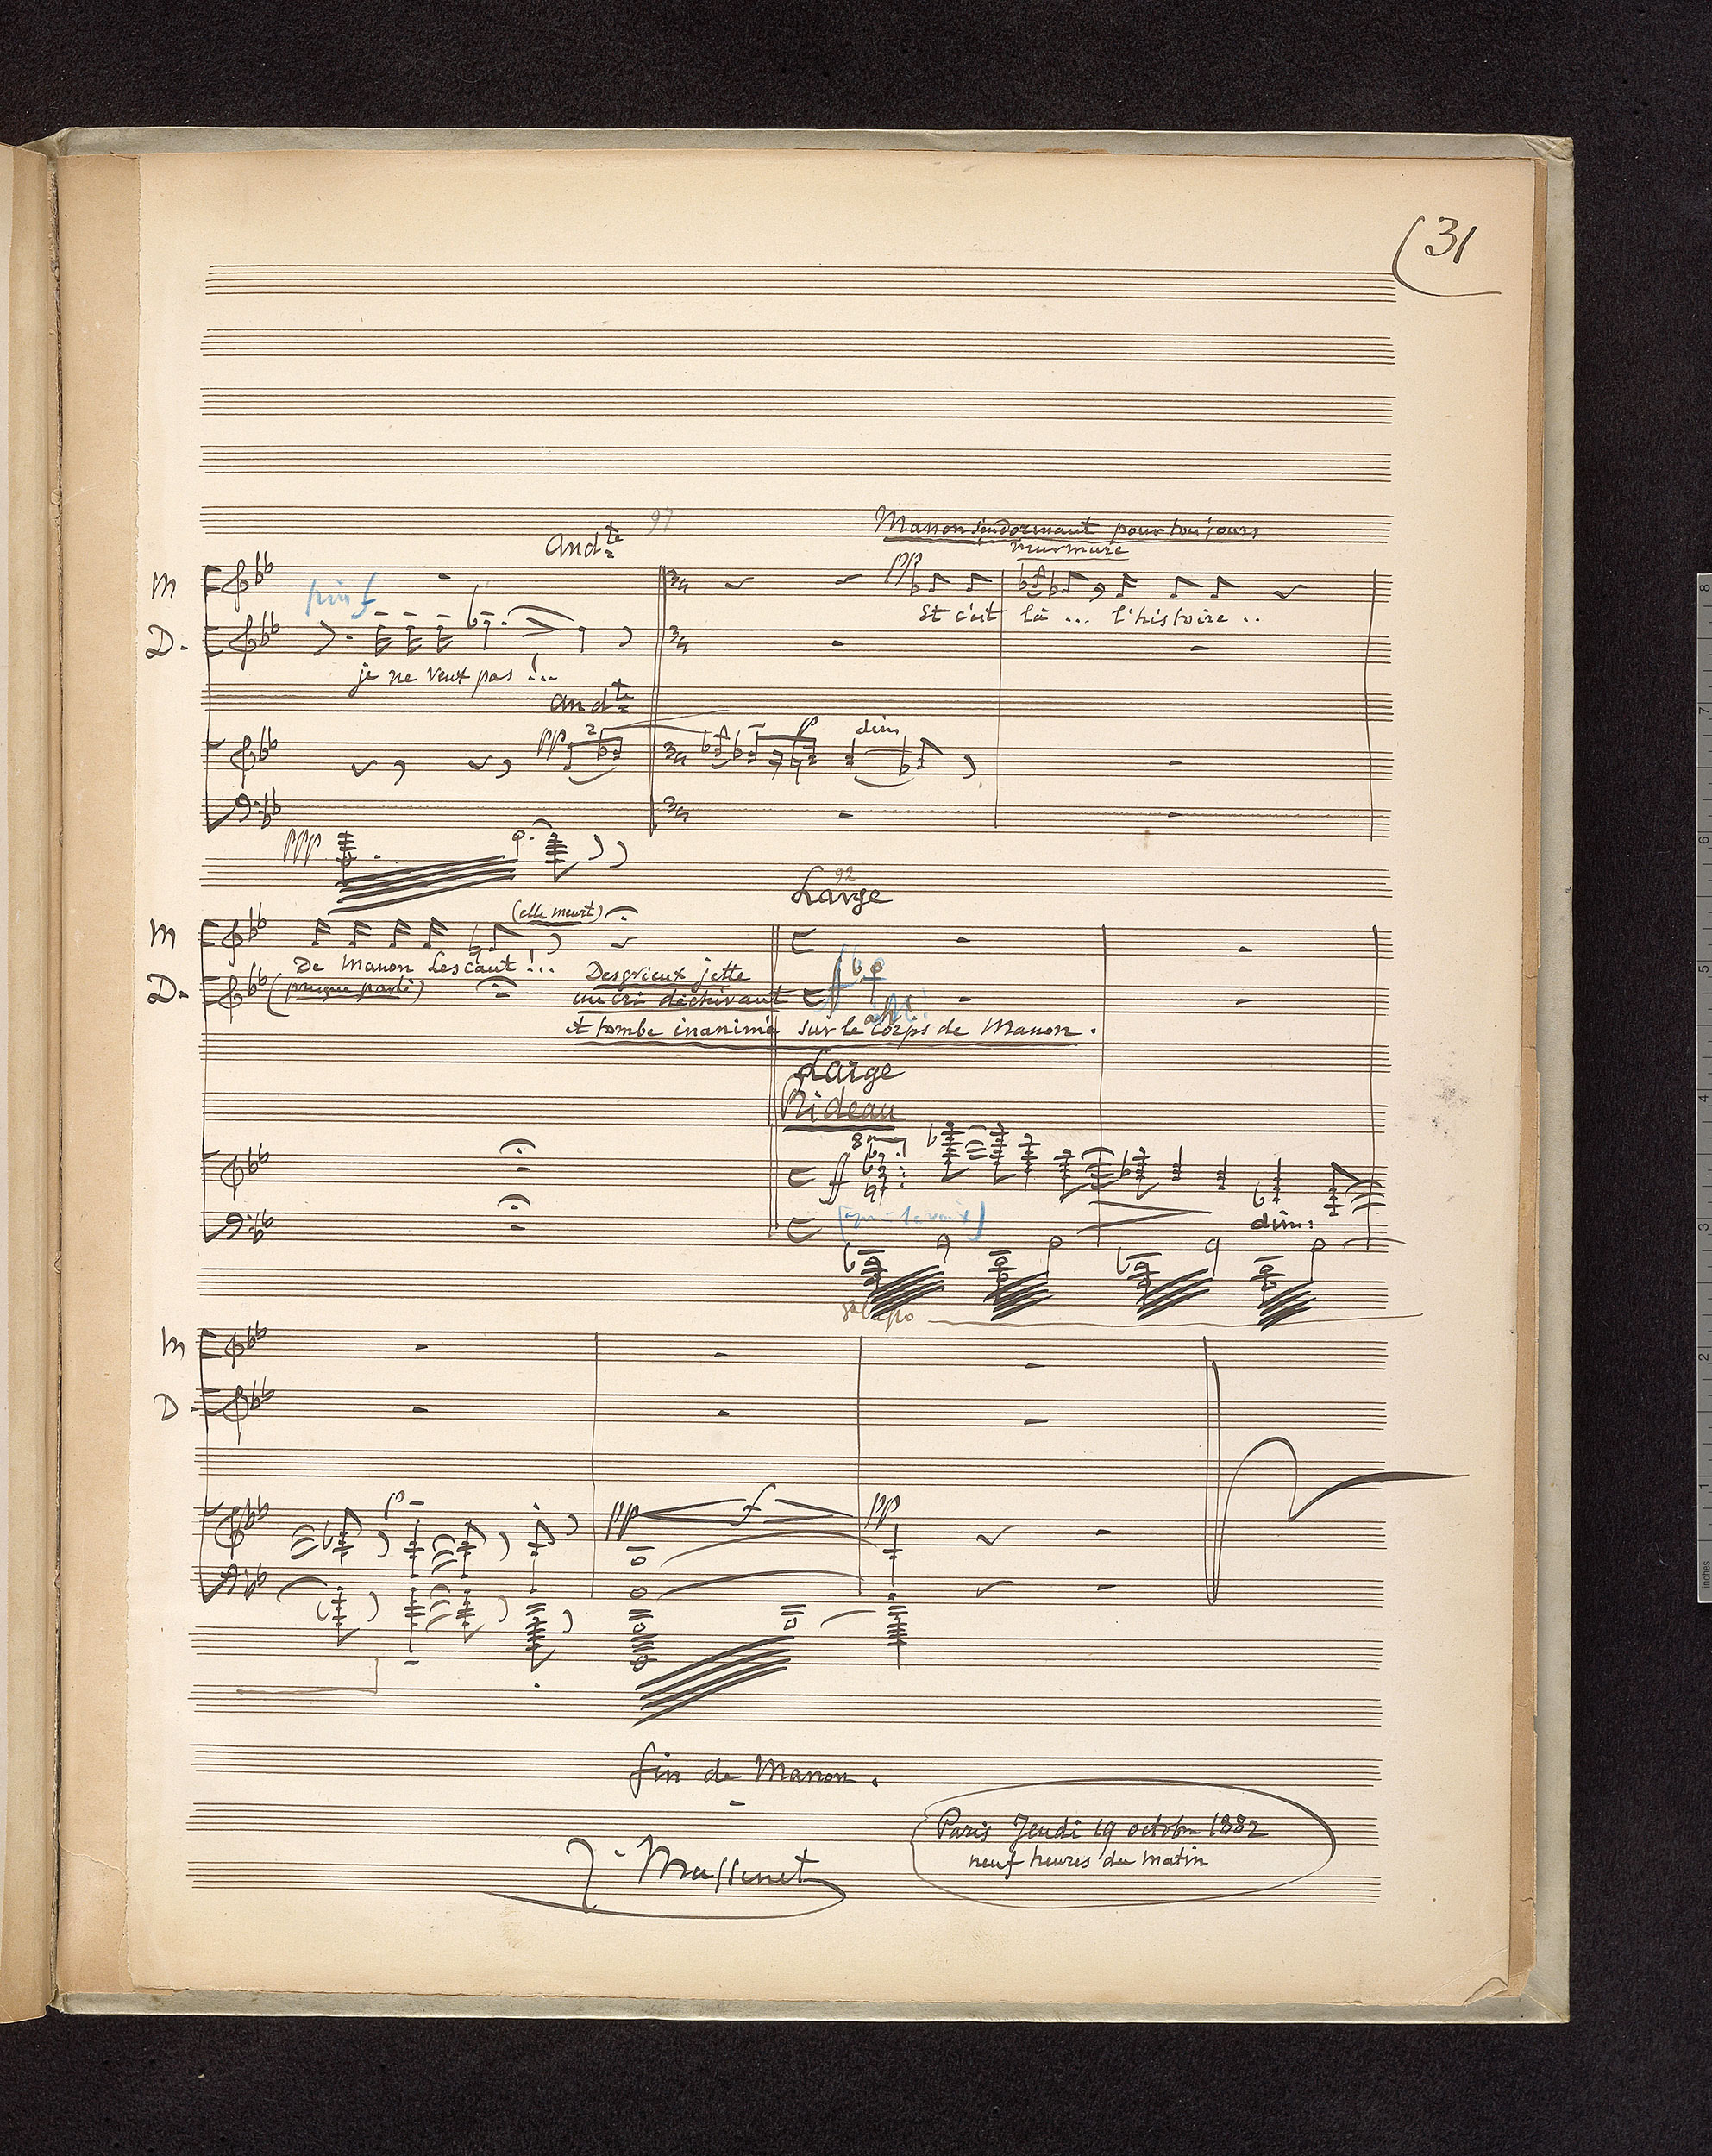 31
Andte 97
Manon s'endormant pour toujours
murmure
M pp
Et c'est là ... l'histoire ..
D.
je ne veux pas !...
Andte
pp 2 p dim
ppp
92
Large
(elle meurt)
M
De Manon Lescaut !...
D. (presque parlé)
Desgrieux jette
un cri déchirant ff
ah!
et tombe inanimé sur le corps de Manon.
Large
Rideau
8
ff
dim:
8a
M
D.
p pp f pp
fin de Manon.
J. Massenet
Paris Jeudi 19 octobre 1882
neuf heures du matin
8
7
6
5
4
3
2
1
inches